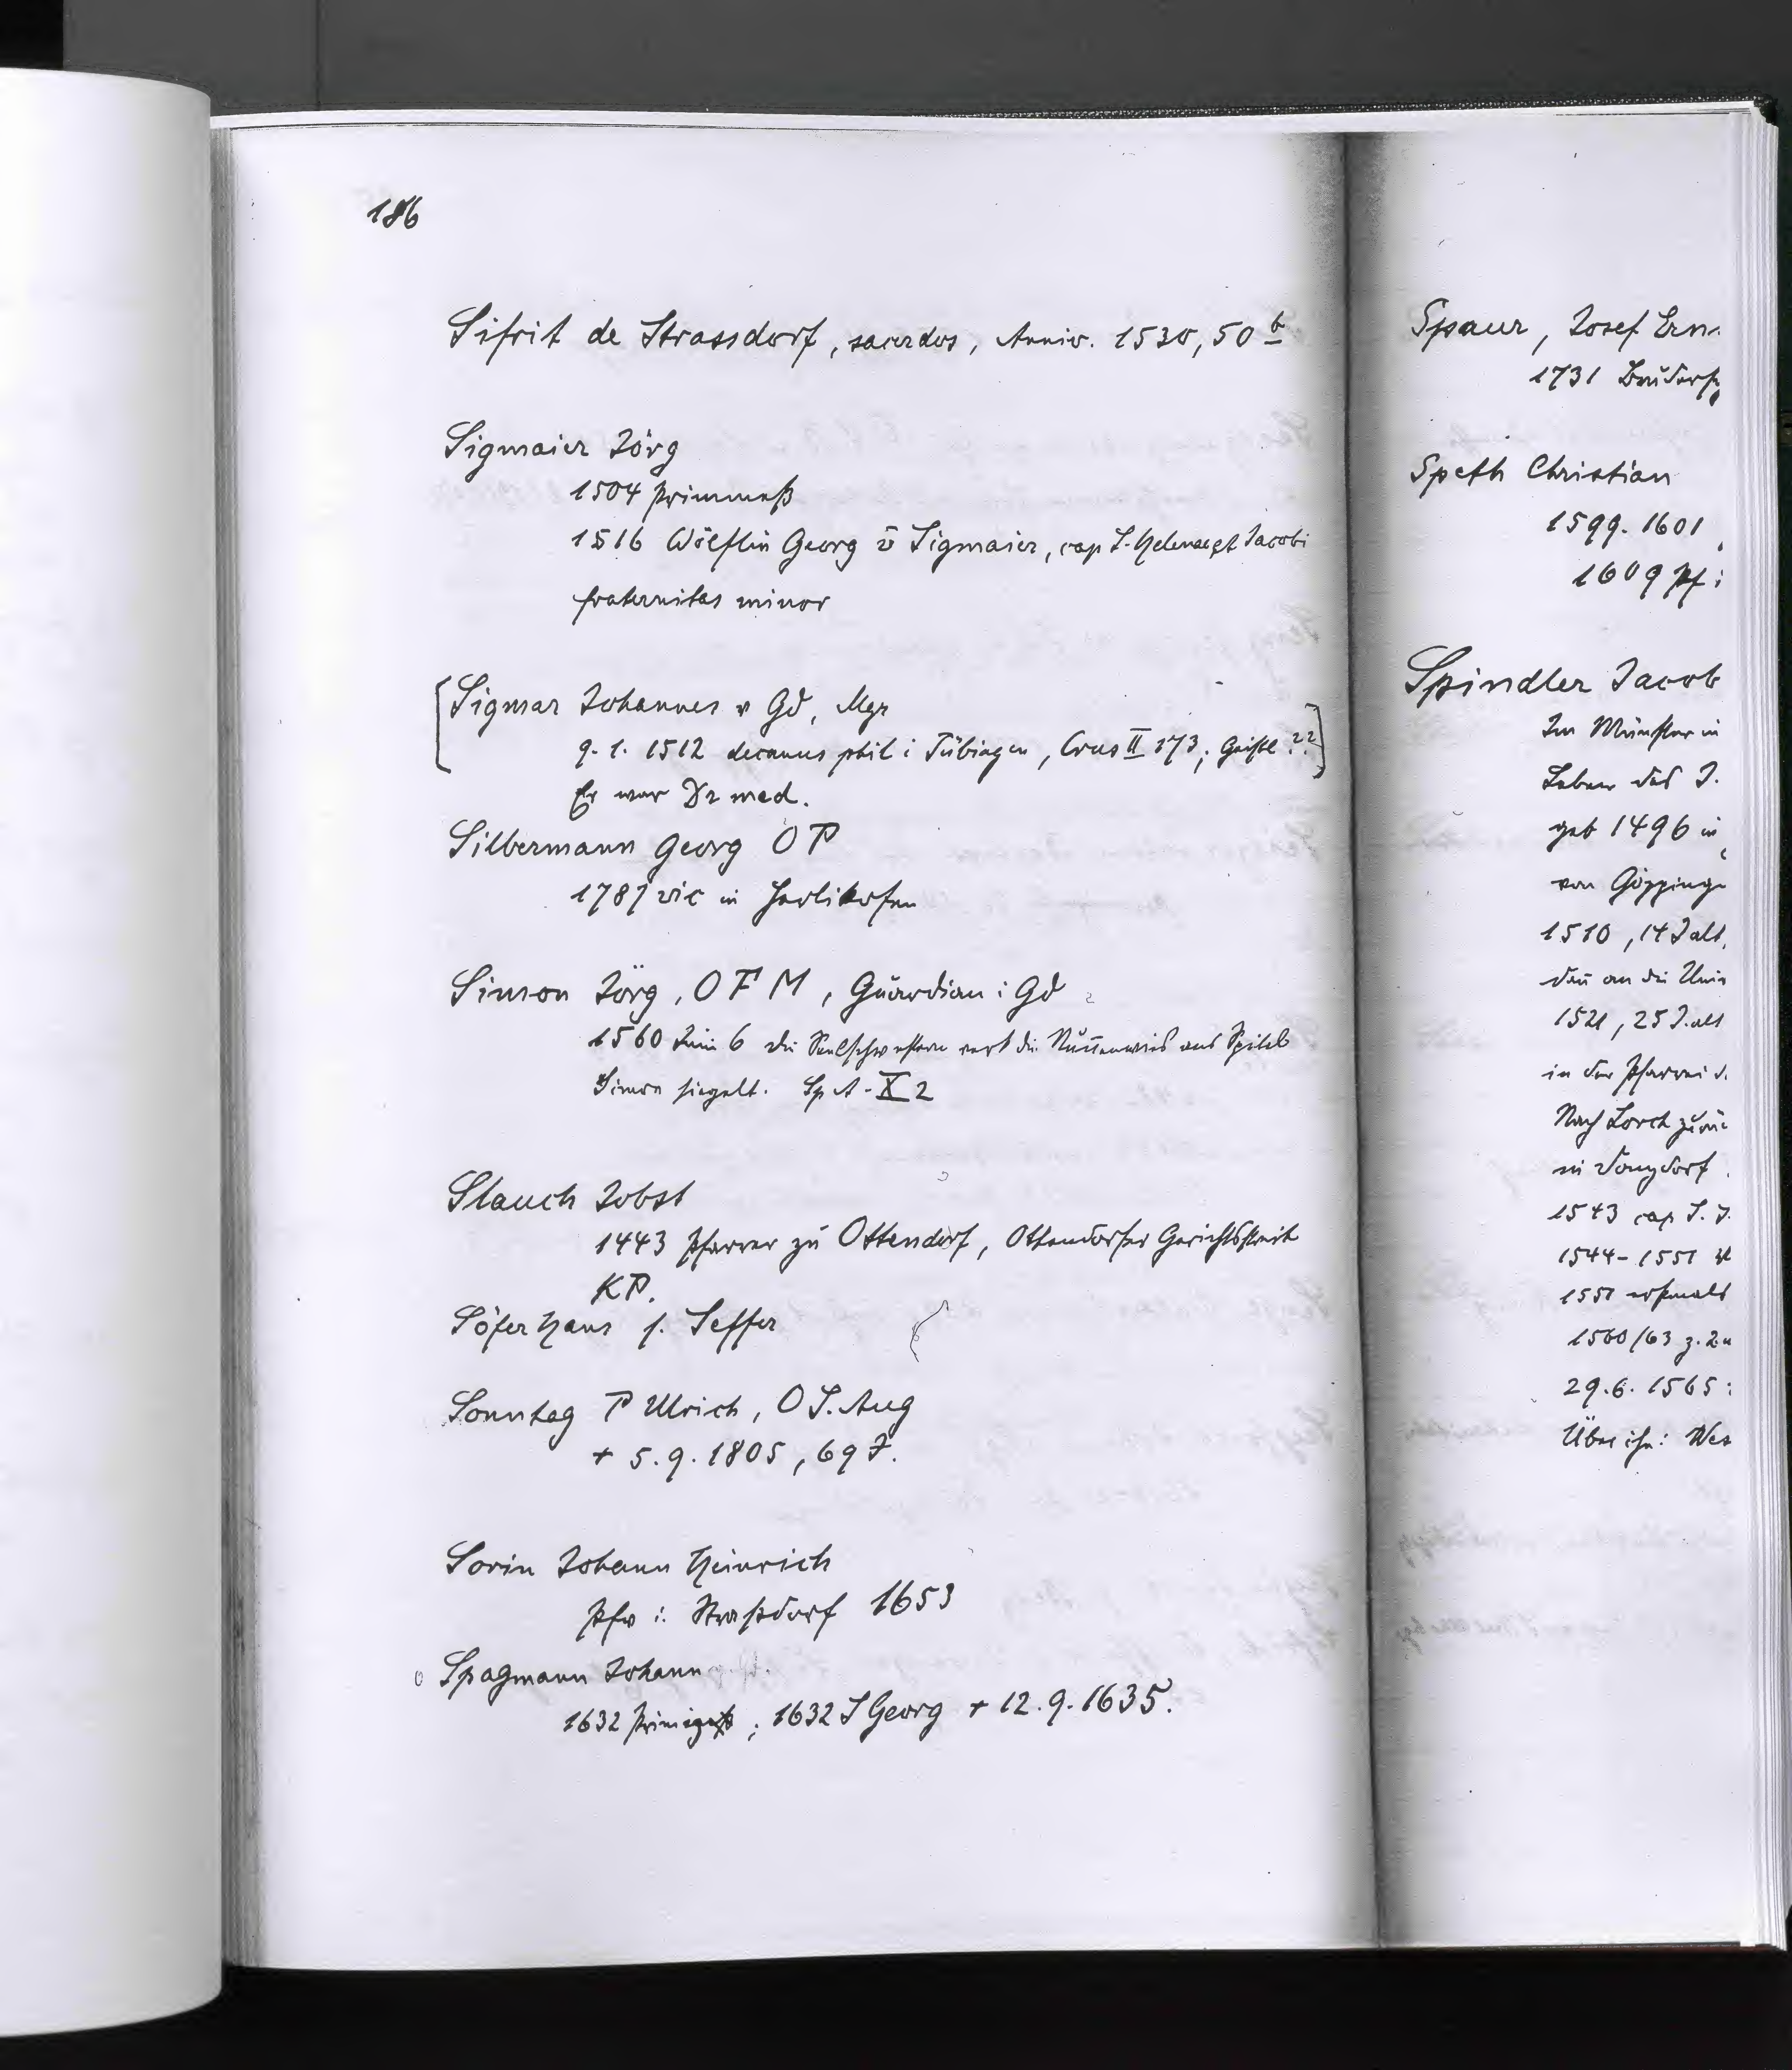 186
Sifrit de Strassdorf, sacerdos, Anniv. 1530, 50 b
Sigmaier Jörg
1504 Primmeß
1516 Wölflin Georg v̄ Sigmaier, cap S. Helenae et Jacobi
fraternitas minor
[Sigmar Johannes v Gd, Mgr
9.1.1512 decanus phil i Tübingen, Crus II 173, Geistl ??]
Er war Dr med.
Silbermann Georg OP
1787 vic in Herlikofen
Simon Jörg, OFM, Guardian i Gd
1560 Juni 6 die Seelschwestern verk die Nunnenwies ans Spital
Simon siegelt. Sp A - X 2
Slauch Jobst
1443 Pfarrer zu Ottendorf, Ottendorfer Gerichtsstreit
KP.
Söfer Hans s. Seffer
Sonntag P Ulrich, O S. Aug
+ 5.9.1805, 69 J.
Sorin Johann Heinrich
Pfr i. Straßdorf 1653
Spagmann Johann
1632 Primiz; 1632 S Georg + 12.9.1635.
Spaur, Josef Ern
1731
Speth Christian
1599. 1601
1609 Pf i
Spindler Jacob
Im Münster in
Leben des J.
geb 1496 in
von Göpping
1510, 14 J alt,
dan an die Univ
1521, 25 J. alt
in der Pfarrei
Nach Lorch zurü
in Donzdorf
1543 cap S. J.
1544-1551
1551 erstmals
1560/63 z. 2.
29.6.1565:
Über ihn: Wes